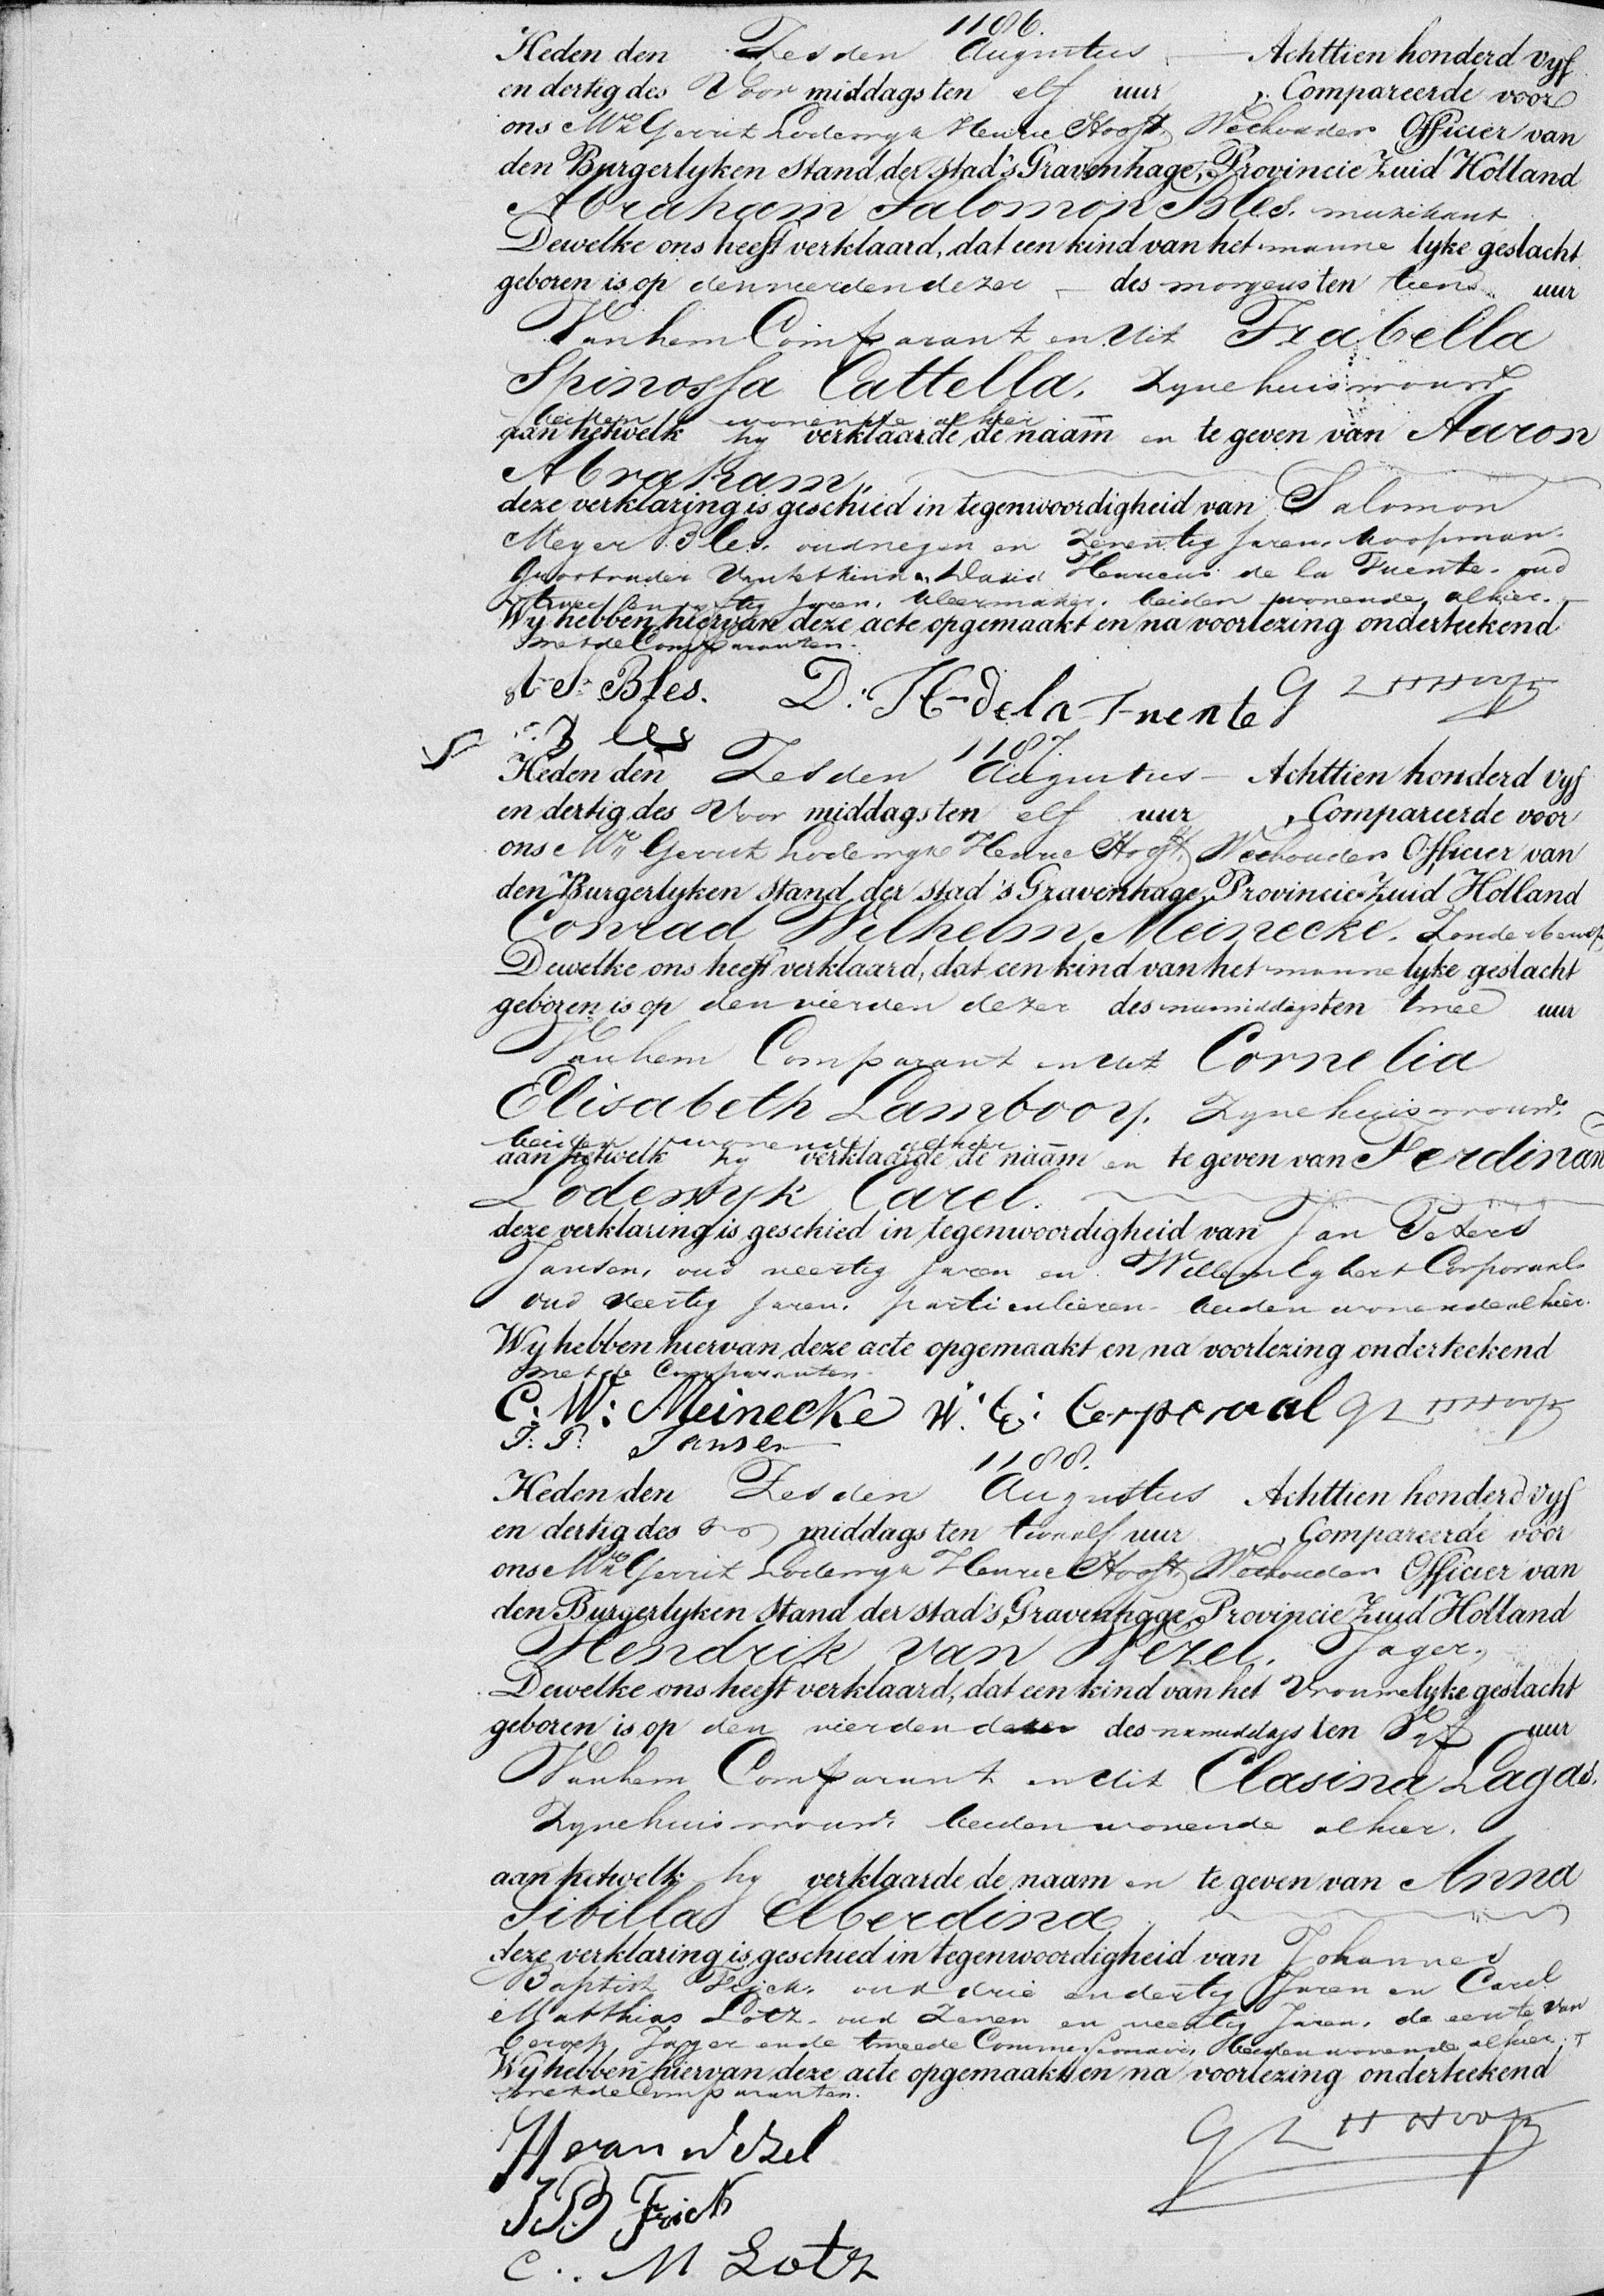 1186.
Heden den Zesden Augustus Achttien honderd vyf
en dertig des Voor middags ten elf uur, Compareerde voor
ons Mr Gerrit Lodewyk Henric Hooft, Wethouder Officier van
den Burgerlyken Stand der stad 's Gravenhage, Provincie Zuid Holland
Abraham Salomon Bles. muzikant
Dewelke ons heeft verklaard, dat een kind van het manne lyke geslacht
geboren is op den vierden dezer des morgens ten tien uur
Van hem Comparant en Uit Izabella
Spinossa Cattella. Zyne huisvrouw,
beiden wonende alhier
aan hetwelk hy verklaarde de naam en te geven van Aaron
Abraham.
deze verklaring is geschied in tegenwoordigheid van Salomon
Meyer Bles. oud negen en Zeventig Jaren. Koopman.
Grootvader Van het kind en David Henricus de la Fuente. oud
Jaren. kleermaker. beiden wonende alhier.
Wy hebben hiervan deze acte opgemaakt en na voorlezing onderteekend
met de Comparanten.
A. S. Bles. D. H. de la Fuente G L H Hooft
Bles
1187.
Heden den Zesden Augustus Achttien honderd vyf
en dertig des Voor middags ten elf uur, Compareerde voor
ons Mr Gerrit Lodewyk Henric Hooft, Wethouder Officier van
den Burgerlyken Stand der stad 's Gravenhage, Provincie Zuid Holland
Conrad Wilhelm Meinecke. Zonder beroep
Dewelke ons heeft verklaard, dat een kind van het manne lyke geslacht
geboren is op den vierden dezer des namiddags ten twee uur
Van hem Comparant en Uit Cornelia
Elisabeth Lambooy. Zyne huisvrouw.
beiden wonende alhier
aan hetwelk hy verklaarde de naam en te geven van Ferdinand
Lodewyk Carel.
deze verklaring is geschied in tegenwoordigheid van Jan Peters
Jansen, oud veertig Jaren en Willem Egbert Corporaal
oud Veertig Jaren. particulieren beiden wonende alhier.
Wy hebben hiervan deze acte opgemaakt en na voorlezing onderteekend
met de Comparanten.
C: W: Meinecke W: E: Corporaal G L H Hooft
J: P: Jansen
1188.
Heden den Zesden Augustus Achttien honderd vyf
en dertig des middags ten twaalf uur, Compareerde voor
ons Mr Gerrit Lodewyk Henric Hooft, Wethouder Officier van
den Burgerlyken Stand der stad 's Gravenhage, Provincie Zuid Holland
Hendrik van Wezel. Jager,
Dewelke ons heeft verklaard, dat een kind van het Vrouwe lyke geslacht
geboren is op den vierden dezer des namiddags ten uur
Van hem Comparant en Uit Clasina Lagas.
Zyne huisvrouw. beiden wonende alhier.
aan hetwelk hy verklaarde de naam en te geven van Anna
Sibilla Elberdina
deze verklaring is geschied in tegenwoordigheid van Johannes
Baptist Frick. oud drie en dertig Jaren en Carel
Matthias Lotz. oud Zeven en veertig Jaren. de eerste van
beroep Jager en de tweede Commissionair, beiden wonende alhier.
Wy hebben hiervan deze acte opgemaakt en na voorlezing onderteekend
met de Comparanten.
H van Wezel G L H Hooft
J B Frick
C. M Lotz